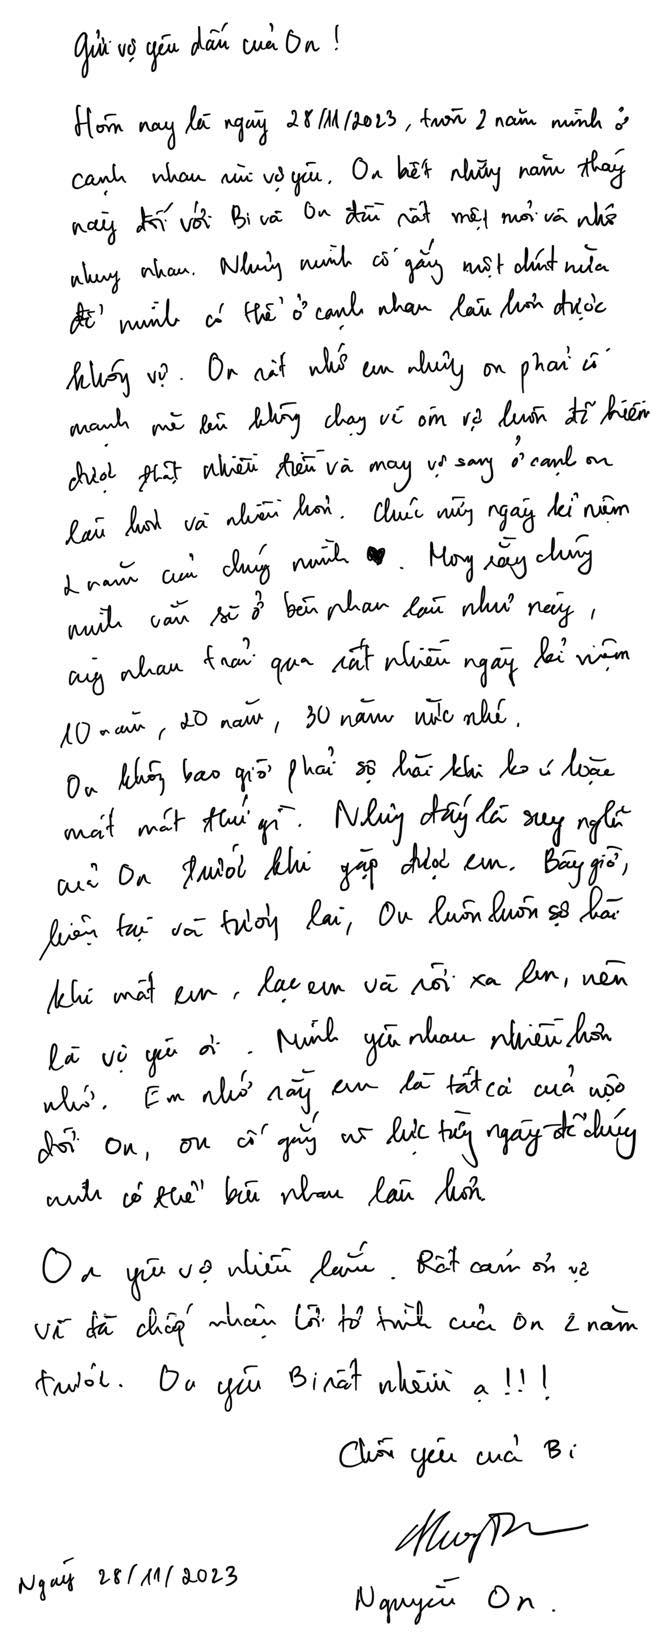 Gửi vợ yêu dấu của On !
Hôm nay là ngày 28/11/2023, tròn 2 năm mình ở
cạnh nhau rùi vợ yêu. On biết những năm tháng
này đối với Bi và On đều rất mệt mỏi và nhớ
nhung nhau. Nhưng mình cố gắng một chút nữa
để mình có thể ở cạnh nhau lâu hơn được
không vợ. On rất nhớ em nhưng on phải cố
mạnh mẽ lên không chạy về ôm vợ luôn để kiếm
được thật nhiều tiền và may vợ sang ở cạnh on
lâu hơn và nhiều hơn. Chúc mừng ngày kỉ niệm
2 năm của chúng mình ♥. Mong rằng chúng
mình vẫn sẽ ở bên nhau lâu như này,
cùng nhau trải qua rất nhiều ngày kỉ niệm
10 năm, 20 năm, 30 năm nữa nhé.
On không bao giờ phải sợ hãi khi ko có hoặc
mất mát thứ gì. Nhưng đấy là suy nghĩ
của On trước khi gặp được em. Bây giờ,
hiện tại và tương lai, On luôn luôn sợ hãi
khi mất em, lạc em và rời xa em, nên
là vợ yêu ơi. Mình yêu nhau nhiều hơn
nhớ. Em nhớ rằng em là tất cả của cuộc
đời On, on cố gắng nỗ lực từng ngày để chúng
mình có thể bên nhau lâu hơn
On yêu vợ nhiều lắm. Rất cảm ơn vợ
vì đã chấp nhận lời tỏ tình của On 2 năm
trước. On yêu Bi rất nhiều ạ!!!
Chồng yêu của Bi
Ngày 28/11/2023
Nguyễn On.